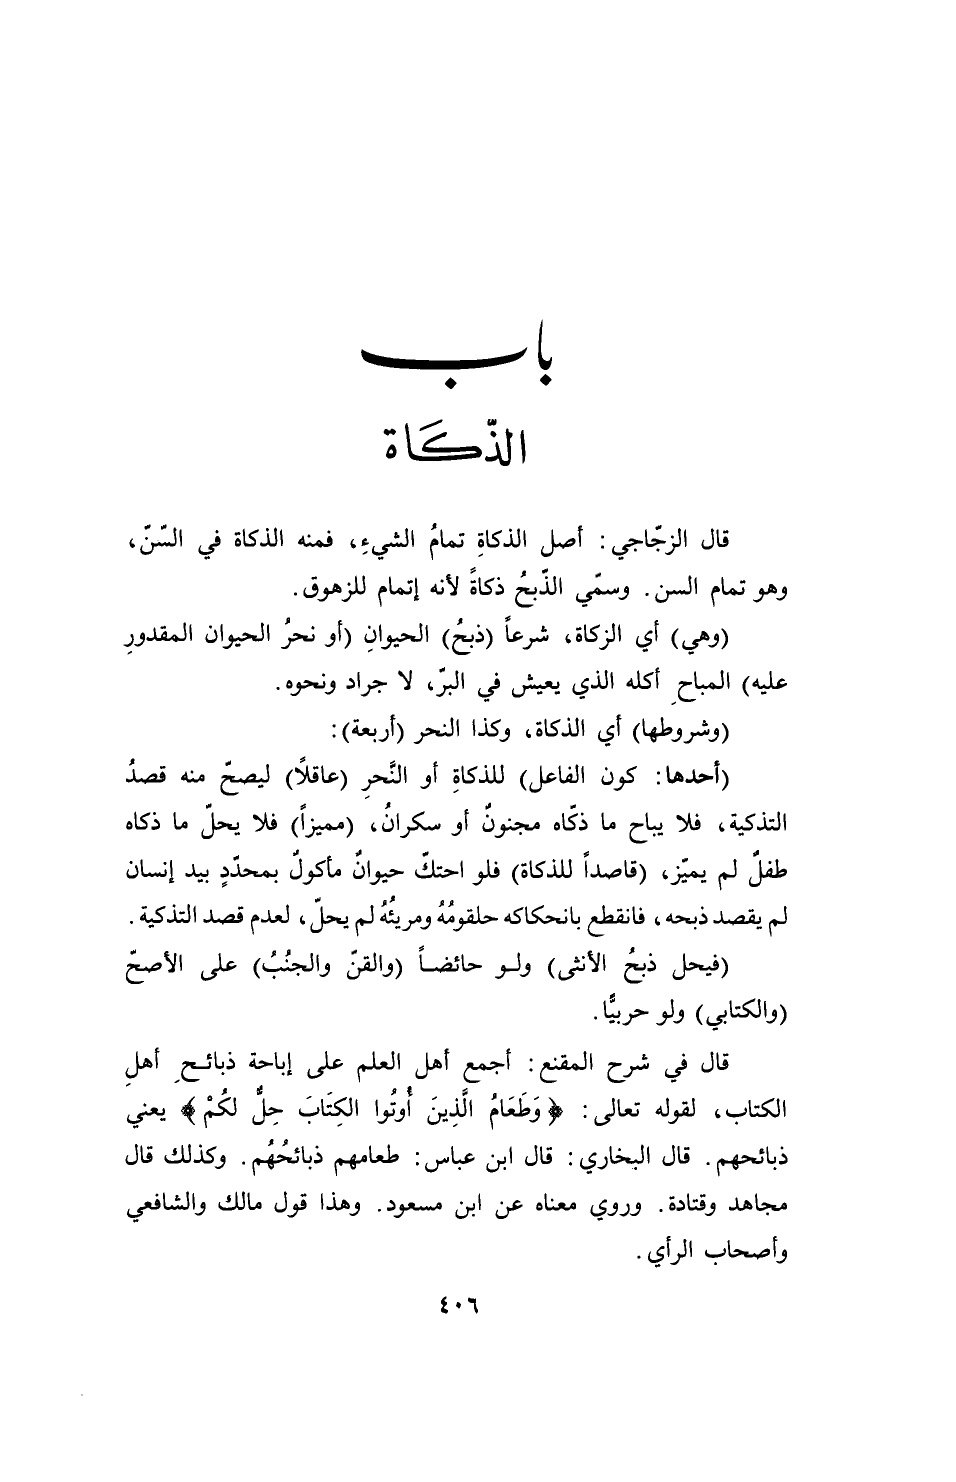 باب
الذّكَاة
قال الزجّاجي: أصل الذكاةِ تمامُ الشيءِ، فمنه الذكاة في السّنّ،
وهو تمام السن. وسمّي الذّبحُ ذكاةً لأنه إتمام للزهوق.
(وهي) أي الزكاة، شرعاً (ذبحُ) الحيوانِ (أو نحرُ الحيوان المقدورِ
عليه) المباحِ أكله الذي يعيش في البرّ، لا جراد ونحوه.
(وشروطها) أي الذكاة، وكذا النحر (أربعة):
(أحدها: كون الفاعل) للذكاةِ أو النَّحرِ (عاقلًا) ليصحّ منه قصدُ
التذكية، فلا يباح ما ذكّاه مجنونٌ أو سكرانُ، (مميزاً) فلا يحلّ ما ذكاه
طفلٌ لم يميّز، (قاصداً للذكاة) فلو احتكّ حيوانٌ مأكولٌ بمحدّدٍ بيد إنسان
لم يقصد ذبحه، فانقطع بانحكاكه حلقومُهُ ومريئُهُ لم يحلّ، لعدم قصد التذكية.
(فيحل ذبحُ الأنثى) ولو حائضاً (والقنّ والجنُبُ) على الأصحّ
(والكتابي) ولو حربيًّا.
قال في شرح المقنع: أجمع أهل العلم على إباحة ذبائحِ أهلِ
الكتاب، لقوله تعالى: ﴿وَطَعَامُ الَّذِينَ أُوتُوا الكِتَابَ حِلٌّ لكُمْ﴾ يعني
ذبائحهم. قال البخاري: قال ابن عباس: طعامهم ذبائحُهُم. وكذلك قال
مجاهد وقتادة. وروي معناه عن ابن مسعود. وهذا قول مالك والشافعي
وأصحاب الرأي.
٤٠٦